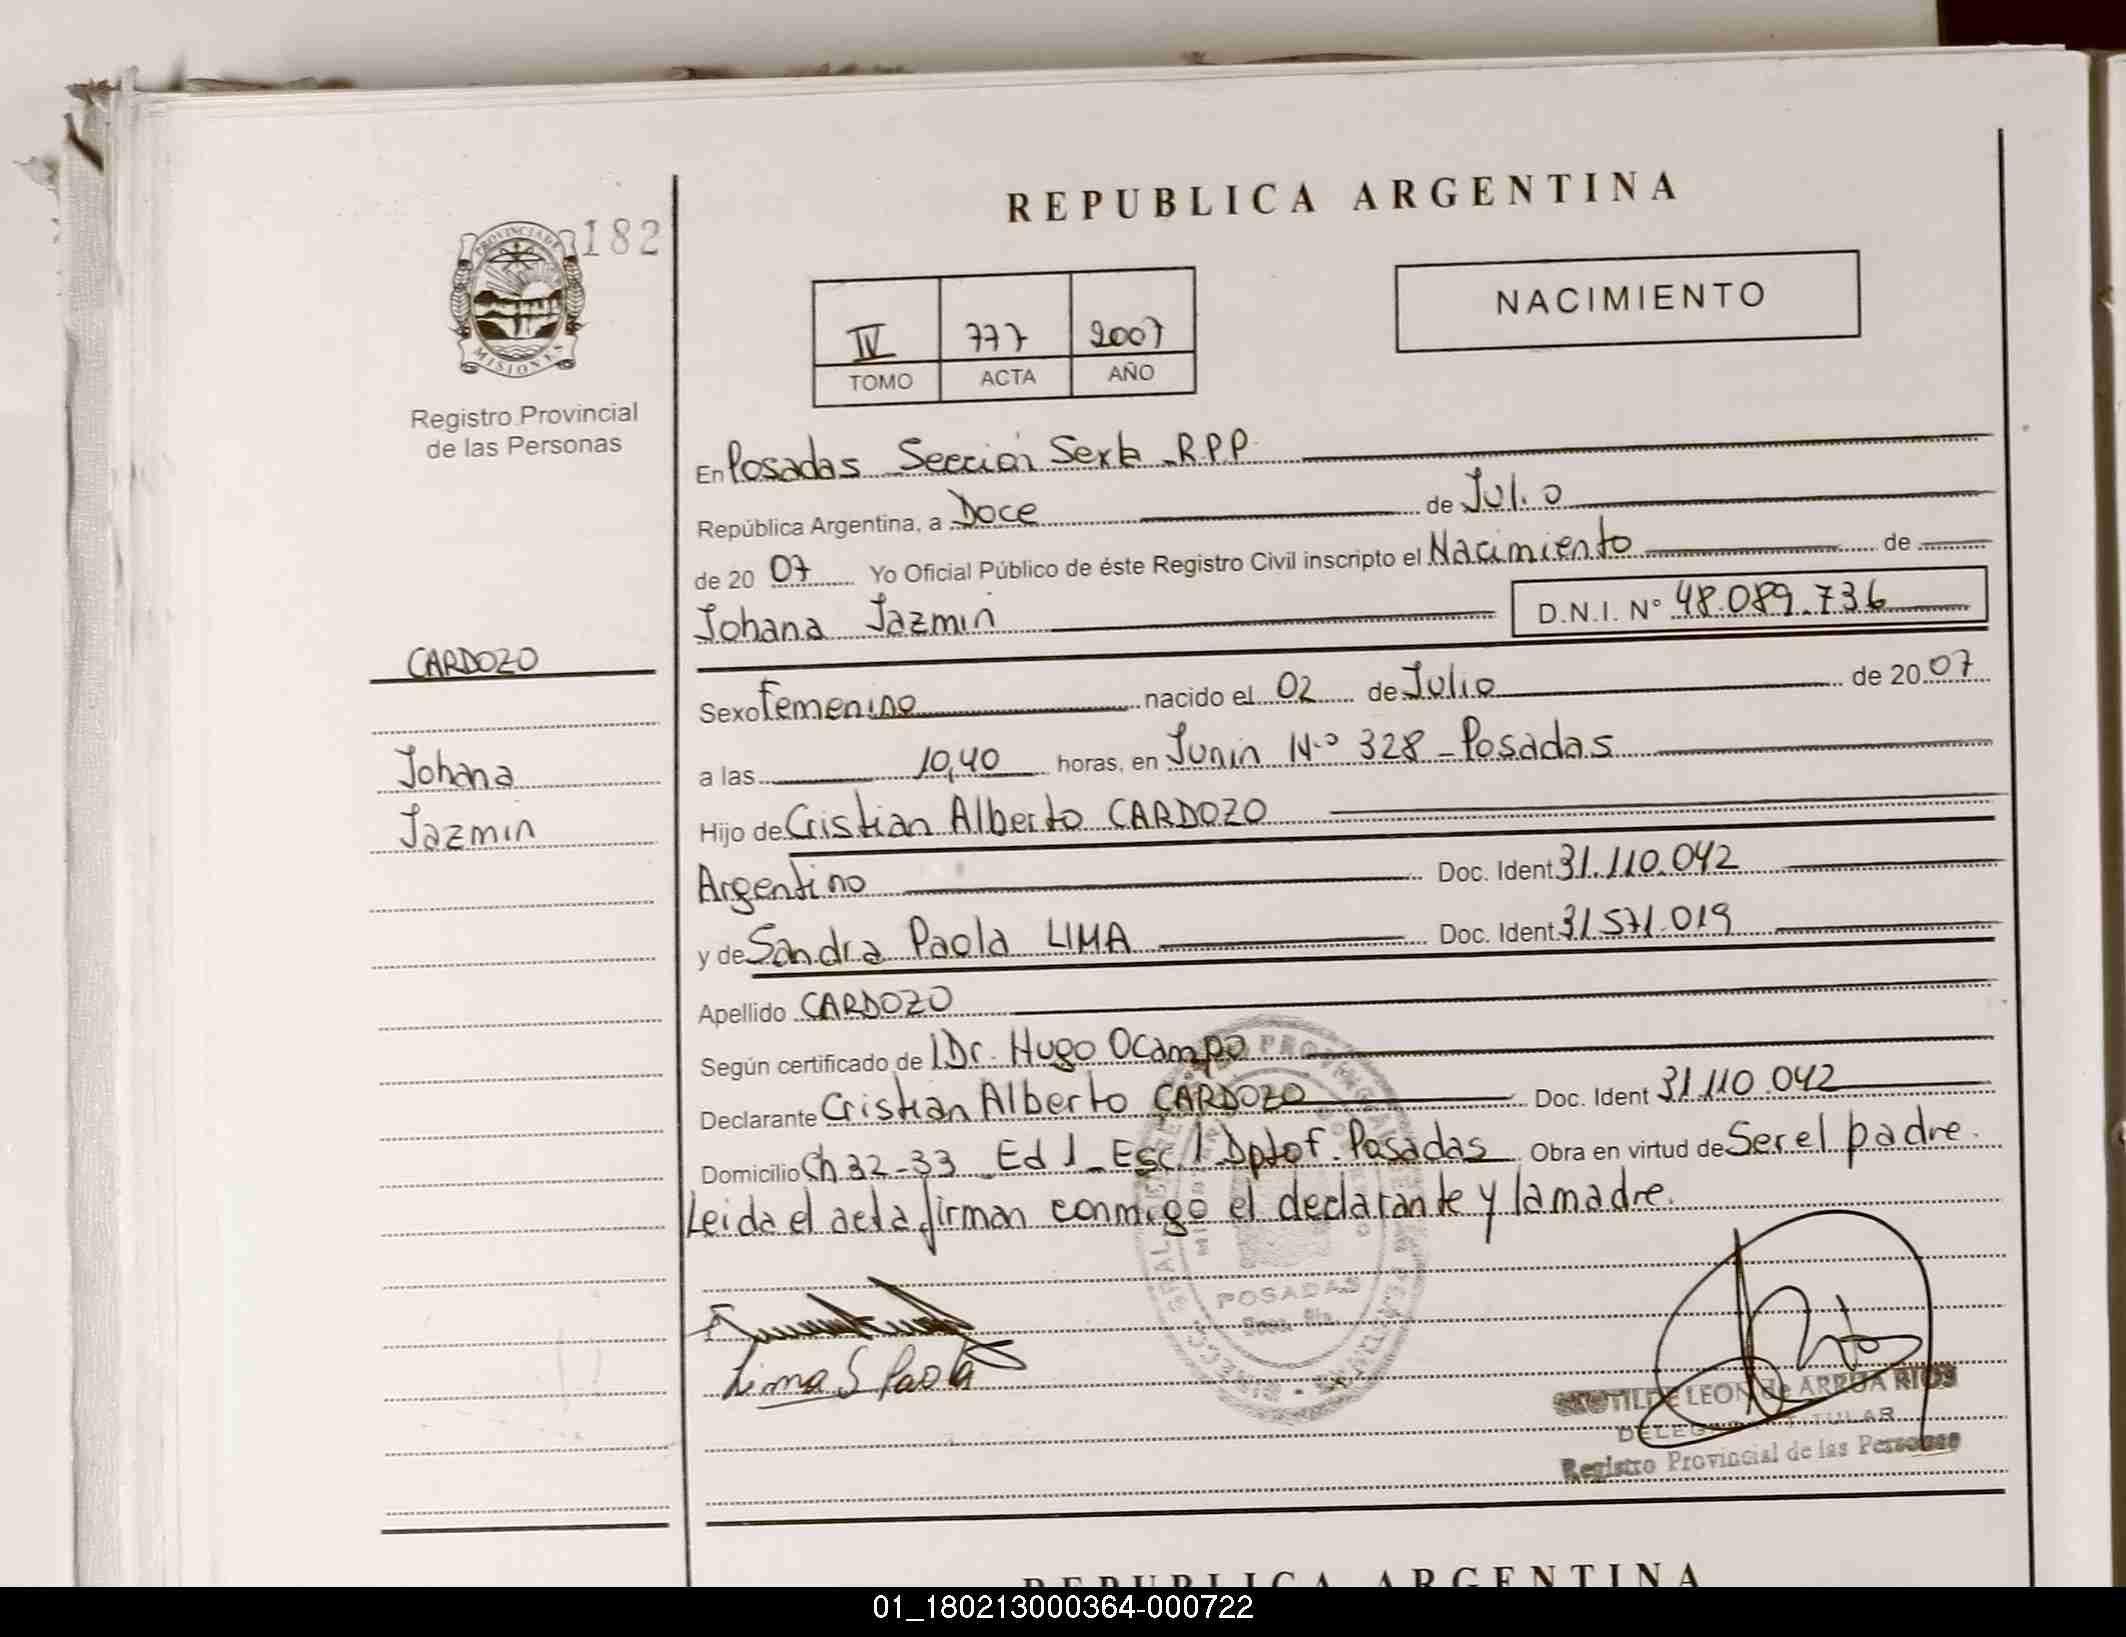 REPUBLICA ARGENTINA
PROVINCIA DE
MISIONES
182
Registro Provincial
de las Personas
IV 777 2007
TOMO ACTA AÑO
NACIMIENTO
En Posadas Sección Sexta R.P.P.
República Argentina, a Doce de Julio
de 20 07 Yo Oficial Público de éste Registro Civil inscripto el Nacimiento de
Johana Jazmin D.N.I. N° 48.089.736
CARDOZO
Johana
Jazmin
Sexo Femenino nacido el 02 de Julio de 20 07
a las 10,40 horas, en Junin N° 328 - Posadas
Hijo de Cristian Alberto CARDOZO
Argentino Doc. Ident 31.110.042
y de Sandra Paola LIMA Doc. Ident 31.571.019
Apellido CARDOZO
Según certificado de Dr. Hugo Ocampo
Declarante Cristian Alberto CARDOZO Doc. Ident 31.110.042
Domicilio Ch 32-33 Ed 1 - Esc 1 Dpto f. Posadas Obra en virtud de Ser el padre.
Leida el acta firman conmigo el declarante y la madre.
POSADAS
Lima S Paola
LEON de ARRUA RIOS
Registro Provincial de las Personas
REPUBLICA ARGENTINA
01_180213000364-000722